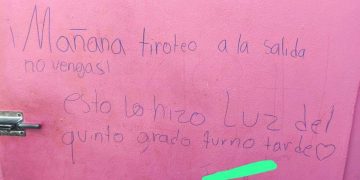 ¡Mañana tiroteo a la salida
no vengas!
esto lo hizo Luz del
quinto grado turno tarde♡